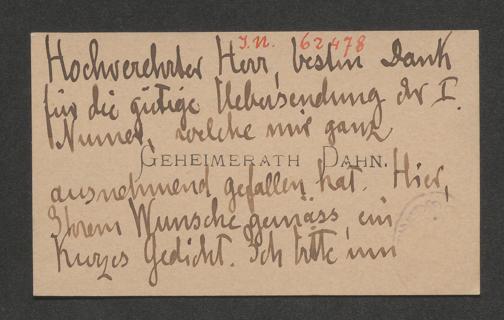 J.N. 62478
Hochverehrter Herr, besten Dank
für die gütige Uebersendung der I.
Numer, welche mir ganz
GEHEIMERATH DAHN.
ausnehmend gefallen hat. Hier,
Ihrem Wunsche gemäss, ein
kurzes Gedicht. Ich bitte um